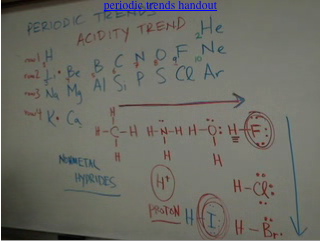 periodic trends handout
PERIODIC TRENDS
ACIDITY TREND
H 2He
row1
row2 Li Be B C N O F Ne
row3 Na Mg Al Si P S Cl Ar
row4 K Ca
H H-C-H H
H-N-H H
H-O: H
H-F:
NONMETAL
HYBRIDES
H+
PROTON
H-Cl:
H I:
H-Br: